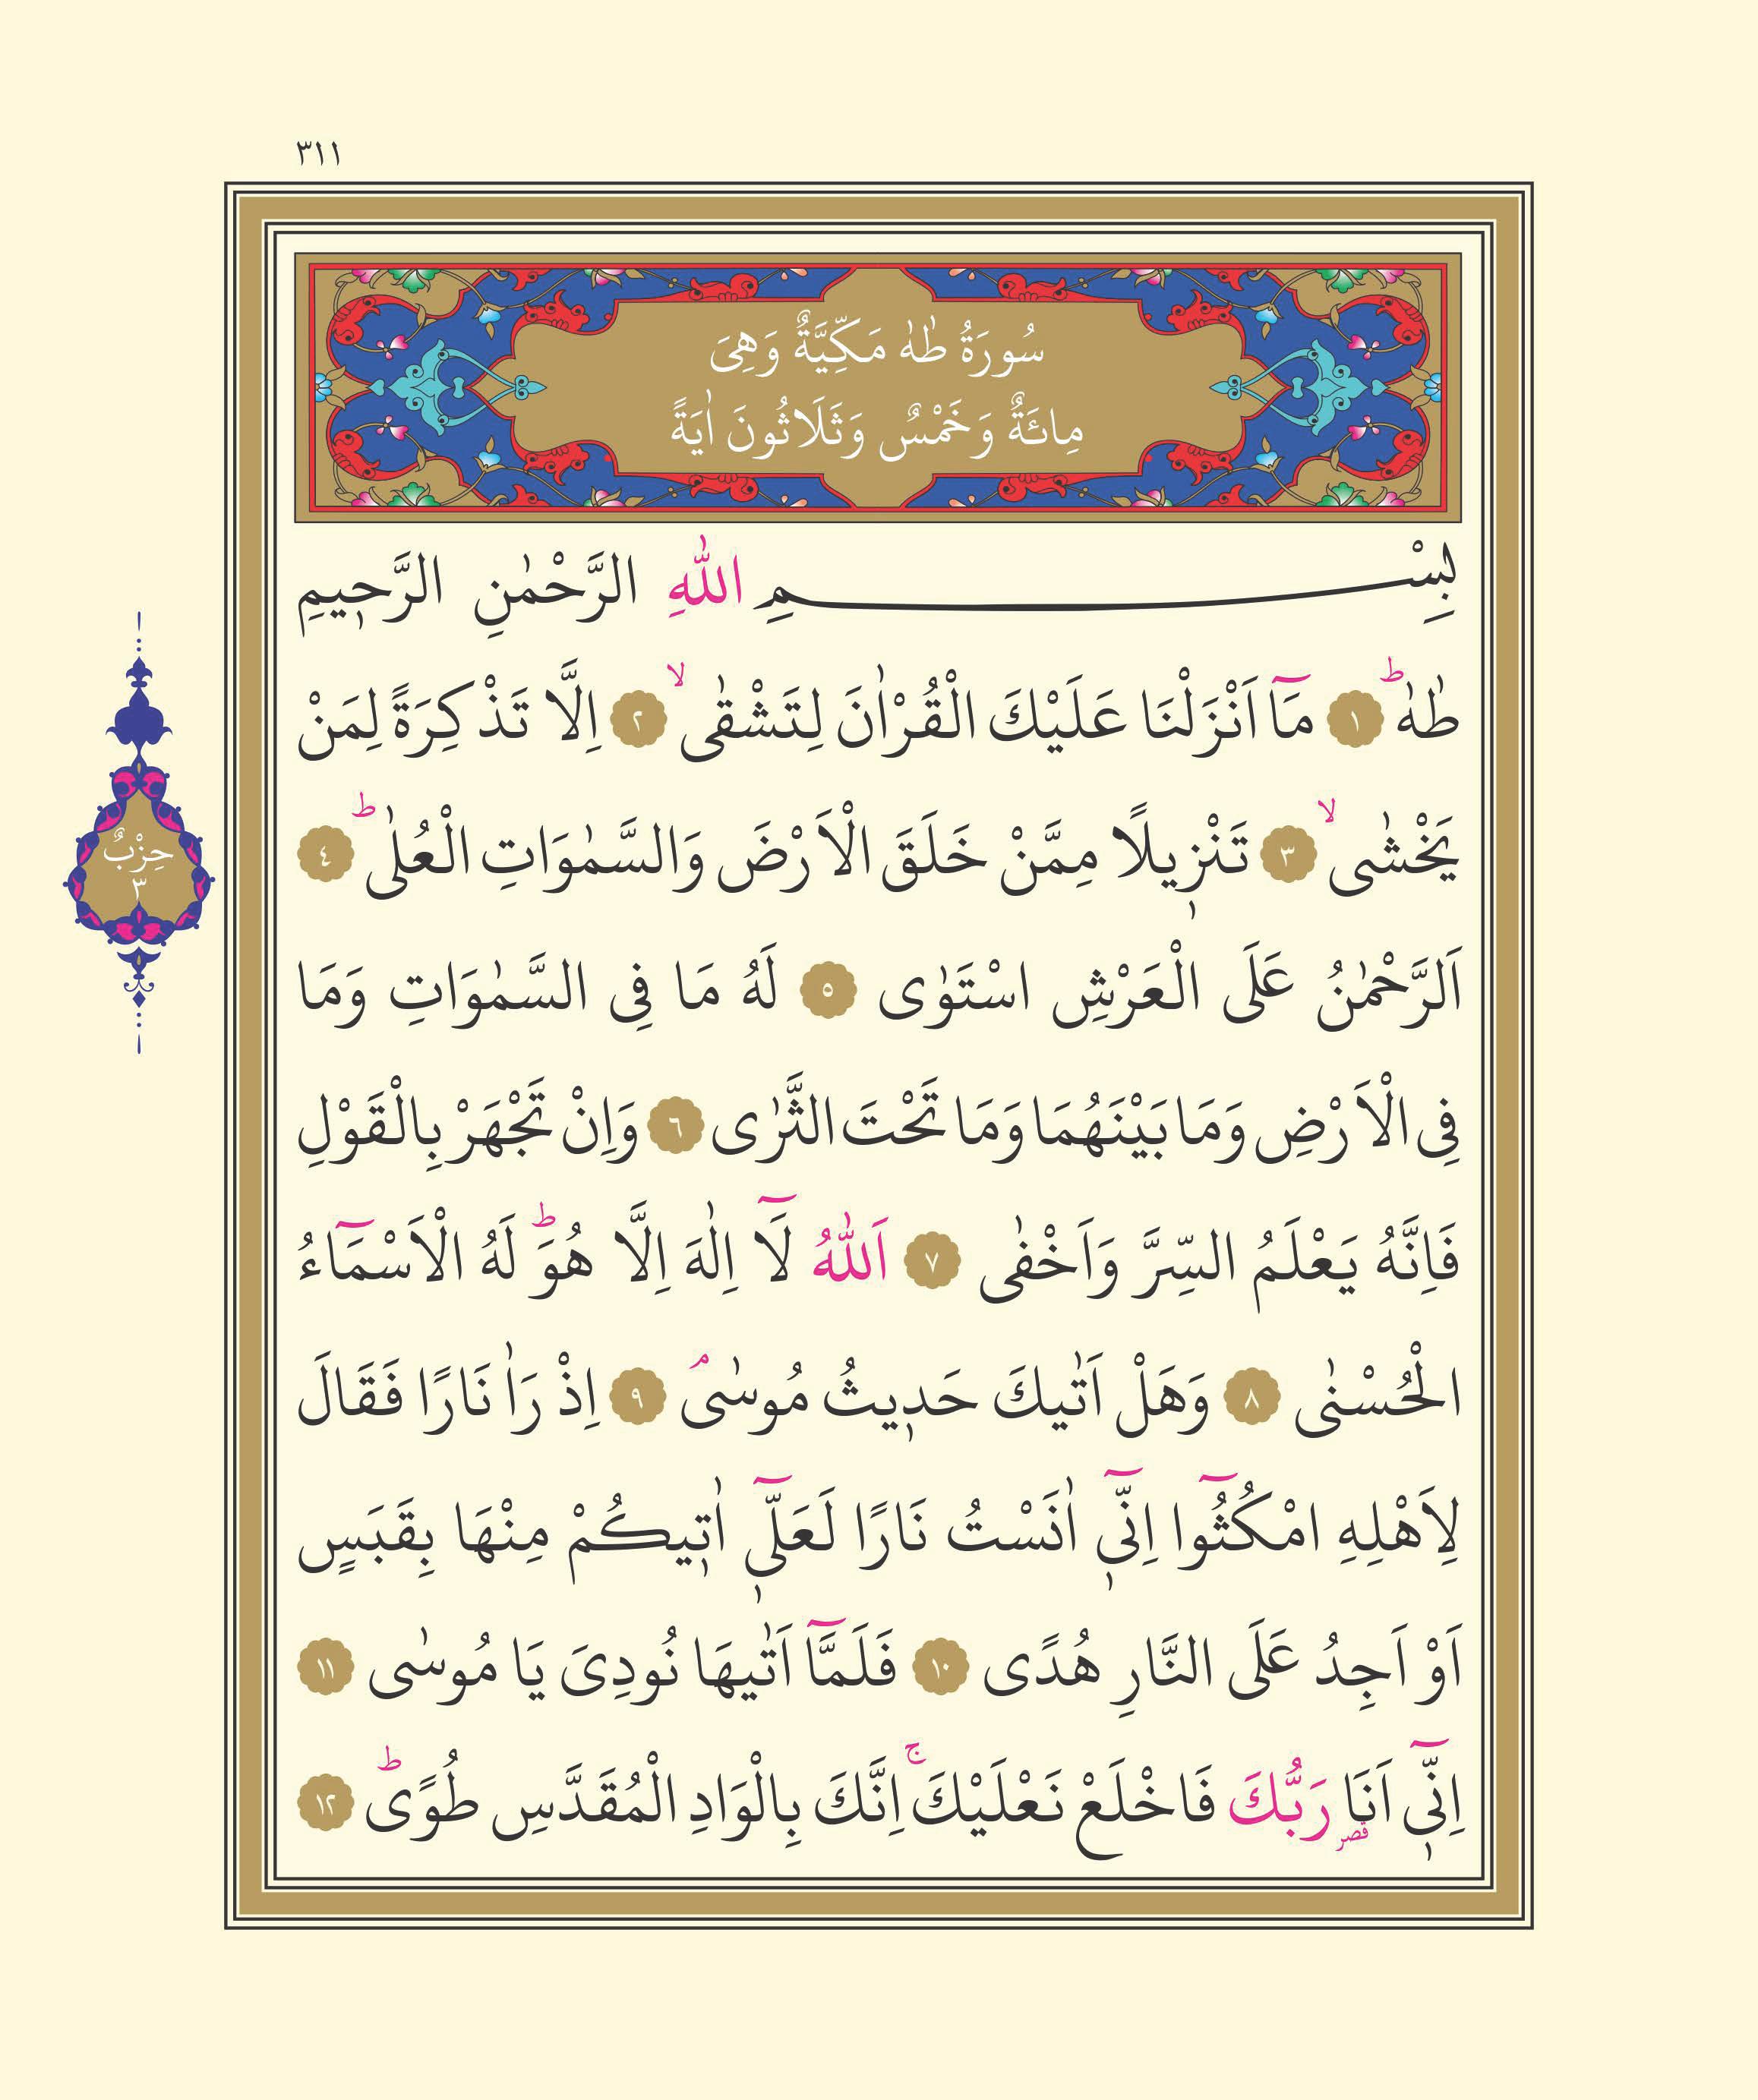 ٣١١
سُورَةُ طٰهٰ مَكِّيَّةٌ وَهِىَ
مِائَةٌ وَخَمْسٌ وَثَلَاثُونَ اٰيَةً
بِسْمِ اللّٰهِ الرَّحْمٰنِ الرَّحٖيمِ
طٰهٰ ؕ ﴿١﴾ مَٓا اَنْزَلْنَا عَلَيْكَ الْقُرْاٰنَ لِتَشْقٰى ۙ ﴿٢﴾ اِلَّا تَذْكِرَةً لِمَنْ
يَخْشٰى ۙ ﴿٣﴾ تَنْزٖيلًا مِمَّنْ خَلَقَ الْاَرْضَ وَالسَّمٰوَاتِ الْعُلٰى ؕ ﴿٤﴾
اَلرَّحْمٰنُ عَلَى الْعَرْشِ اسْتَوٰى ﴿٥﴾ لَهُ مَا فِى السَّمٰوَاتِ وَمَا
فِى الْاَرْضِ وَمَا بَيْنَهُمَا وَمَا تَحْتَ الثَّرٰى ﴿٦﴾ وَاِنْ تَجْهَرْ بِالْقَوْلِ
فَاِنَّهُ يَعْلَمُ السِّرَّ وَاَخْفٰى ﴿٧﴾ اَللّٰهُ لَٓا اِلٰهَ اِلَّا هُوَ ؕ لَهُ الْاَسْمَٓاءُ
الْحُسْنٰى ﴿٨﴾ وَهَلْ اَتٰيكَ حَدٖيثُ مُوسٰى ۘ ﴿٩﴾ اِذْ رَاٰ نَارًا فَقَالَ
لِاَهْلِهِ امْكُثُٓوا اِنّٖٓى اٰنَسْتُ نَارًا لَعَلّٖٓى اٰتٖيكُمْ مِنْهَا بِقَبَسٍ
اَوْ اَجِدُ عَلَى النَّارِ هُدًى ﴿١٠﴾ فَلَمَّٓا اَتٰيهَا نُودِىَ يَا مُوسٰى ﴿١١﴾
اِنّٖٓى اَنَا۬ قصر رَبُّكَ فَاخْلَعْ نَعْلَيْكَ ۚ اِنَّكَ بِالْوَادِ الْمُقَدَّسِ طُوًى ؕ ﴿١٢﴾
حِزْبٌ
٣